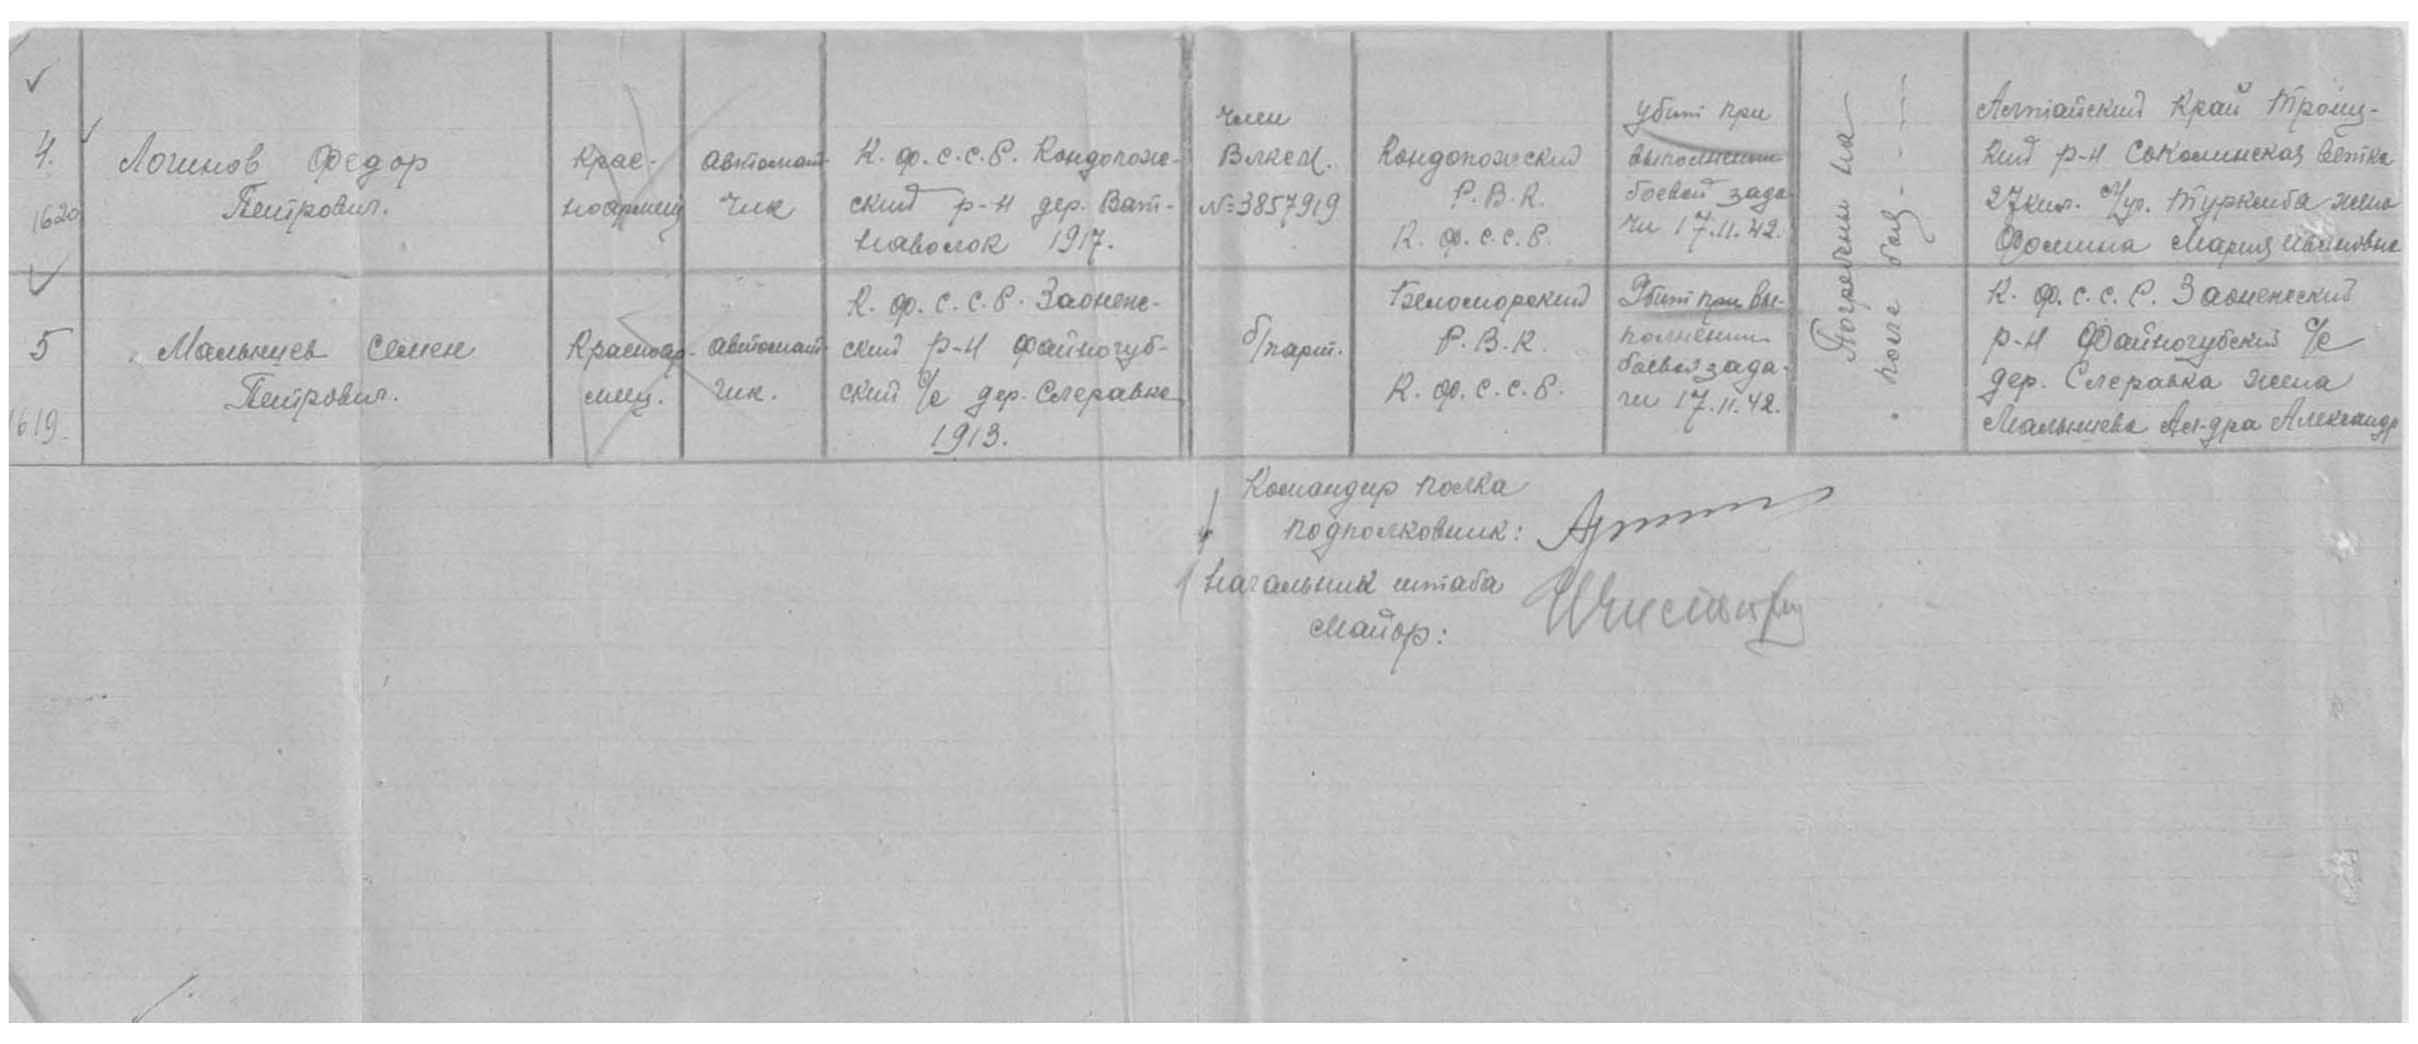 4.
1620
Логинов Федор
Петрович.
Крас-
ноармеец
автомат-
чик
К. Ф. С. С. Р. Кондопож-
ский р-н дер. Ват-
наволок 1917.
член
ВЛКСМ.
№ 3857919
Кондопожский
Р. В. К.
К. Ф. С. С. Р.
Убит при
выполнении
боевой зада-
чи 17.11.42.
Погребены на
поле боя
Алтайский Край Троиц-
кий р-н Соколинская ветка
27 кил. Турксиба жена
Фомина Мария Ивановна
5
1619.
Мальцев Семен
Петрович.
Красноар-
меец.
автомат-
чик.
К. Ф. С. С. Р. Заонеж-
ский р-н Файмогуб-
ский с/с дер.
1913.
б/парт.
Беломорский
Р. В. К.
К. Ф. С. С. Р.
Убит при вы-
полнении
боевой зада-
чи 17.11.42.
К. Ф. С. С. Р. Заонежский
р-н Файмогубский с/с
дер. жена
Мальцева Ал-дра Александр
Командир полка
подполковник:
Начальник штаба
Майор: